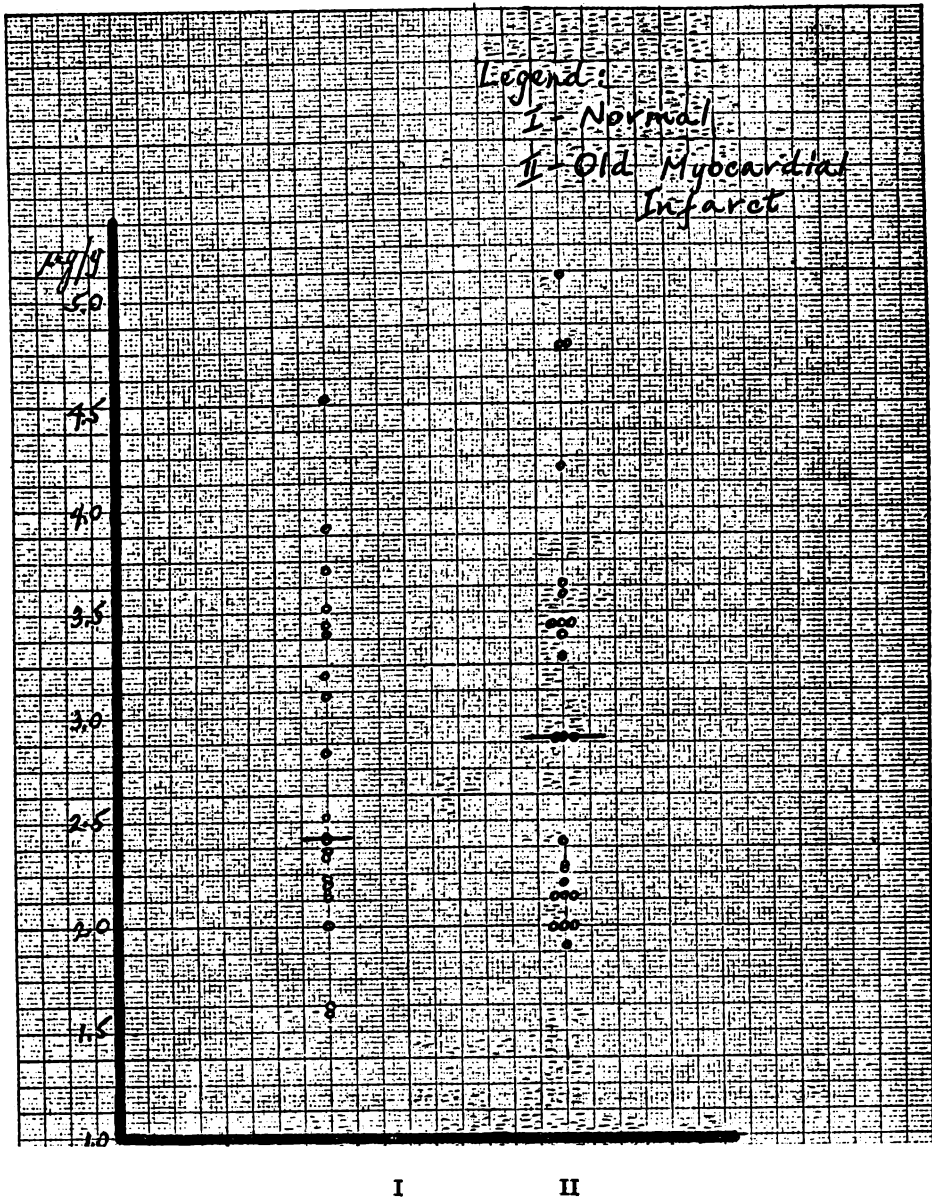 Legend:
I - Normal
II - Old Myocardial
Infarct
µg/g
5.0
4.5
4.0
3.5
3.0
2.5
2.0
1.5
1.0
I II